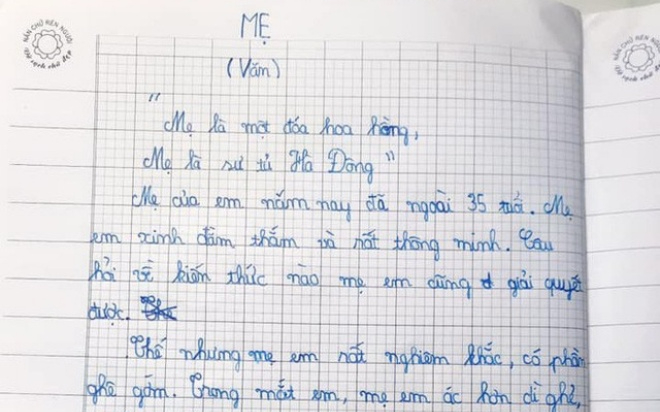 NẮN CHỮ RÈN NGƯỜI
Giữ sạch chữ đẹp
MẸ
(Văn)
"
Mẹ là một đóa hoa hồng,
Mẹ là sư tử Hà Đông"
Mẹ của em năm nay đã ngoài 35 tuổi. Mẹ
em xinh đằm thắm và rất thông minh. Câu
hỏi về kiến thức nào mẹ em cũng giải quyết
được.
Thế nhưng mẹ em rất nghiêm khắc, có phần
ghê gớm. Trong mắt em, mẹ em ác hơn dì ghẻ,